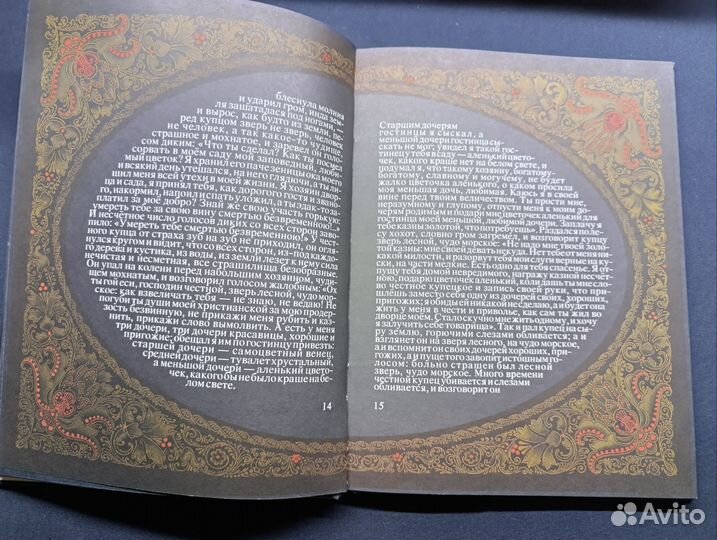 блеснула молния
и ударил гром, инда зем-
ля зашаталася под ногами, —
и вырос, как будто из земли, пе-
ред купцом зверь не зверь, человек
не человек, а так какое-то чудище,
страшное и мохнатое, и заревел он голо-
сом диким: «Что ты сделал? Как ты посмел
сорвать в моём саду мой заповедный, люби-
мый цветок? Я хранил его паче зеницы ока моего
и всякий день утешался, на него глядючи, а ты ли-
шил меня всей утехи в моей жизни. Я хозяин двор-
ца и сада, я принял тебя, как дорогого гостя и зван-
ного, накормил, напоил и спать уложил, а ты эдак-то за-
платил за моё добро? Знай же свою участь горькую:
умереть тебе за свою вину смертью безвременною!..»
И несчётное число голосов диких со всех сторон заво-
пило: «Умереть тебе смертью безвременною!» У чест-
ного купца от страха зуб на зуб не приходил, он огля-
нулся кругом и видит, что со всех сторон, из-под каждо-
го дерева и кустика, из воды, из земли лезет к нему сила
нечистая и несметная, все страшилища безобразные.
Он упал на колени перед набольшим хозяином, чуди-
щем мохнатым, и возговорил голосом жалобным: «Ох
ты гой еси, господин честной, зверь лесной, чудо мор-
ское: как взвеличать тебя — не знаю, не ведаю! Не
погуби ты души моей христианской за мою продер-
зость безвинную, не прикажи меня рубить и каз-
нить, прикажи слово вымолвить. А есть у меня
три дочери, три дочери красавицы, хорошие и
пригожие; обещал я им по гостинцу привезть:
старшей дочери — самоцветный венец,
средней дочери — тувалет хрустальный,
а меньшой дочери — аленький цвето-
чек, какого бы не было краше на бе-
лом свете.
14
Старшим дочерям
гостинцы я сыскал, а
меньшой дочери гостинца сыс-
кать не мог; увидел я такой гос-
тинец у тебя в саду — аленький цвето-
чек, какого краше нет на белом свете, и
подумал я, что такому хозяину, богатому-
богатому, славному и могучему, не будет
жалко цветочка аленького, о каком просила
моя меньшая дочь, любимая. Каюсь я в своей
вине перед твоим величеством. Ты прости мне,
неразумному и глупому, отпусти меня к моим до-
черям родимым и подари мне цветочек аленький для
гостинца моей меньшой, любимой дочери. Заплачу я
тебе казны золотой, что потребуешь». Раздался по ле-
су хохот, словно гром загремел, и возговорит купцу
зверь лесной, чудо морское: «Не надо мне твоей золотой
казны: мне своей девать некуда. Нет тебе от меня ни-
какой милости, и разорвут тебя мои слуги верные на ку-
ски, на части мелкие. Есть одно для тебя спасенье. Я от-
пущу тебя домой невредимого, награжу казной несчёт-
ною, подарю цветочек аленький, коли дашь ты мне сло-
во честное купецкое и запись своей руки, что при-
шлёшь заместо себя одну из дочерей своих, хороших,
пригожих; я обиды ей никакой не сделаю, а и будет она
жить у меня в чести и приволье, как сам ты жил во
дворце моём. Стало скучно мне жить одному, и хочу
я залучить себе товарища». Так и пал купец на сы-
ру землю, горючими слезами обливается; а и
взглянет он на зверя лесного, на чудо морское,
а и вспомнит он своих дочерей хороших, при-
гожих, а и пуще того завопит истошным го-
лосом: больно страшен был лесной
зверь, чудо морское. Много времени
честной купец убивается и слезами
обливается, и возговорит он
15
Avito